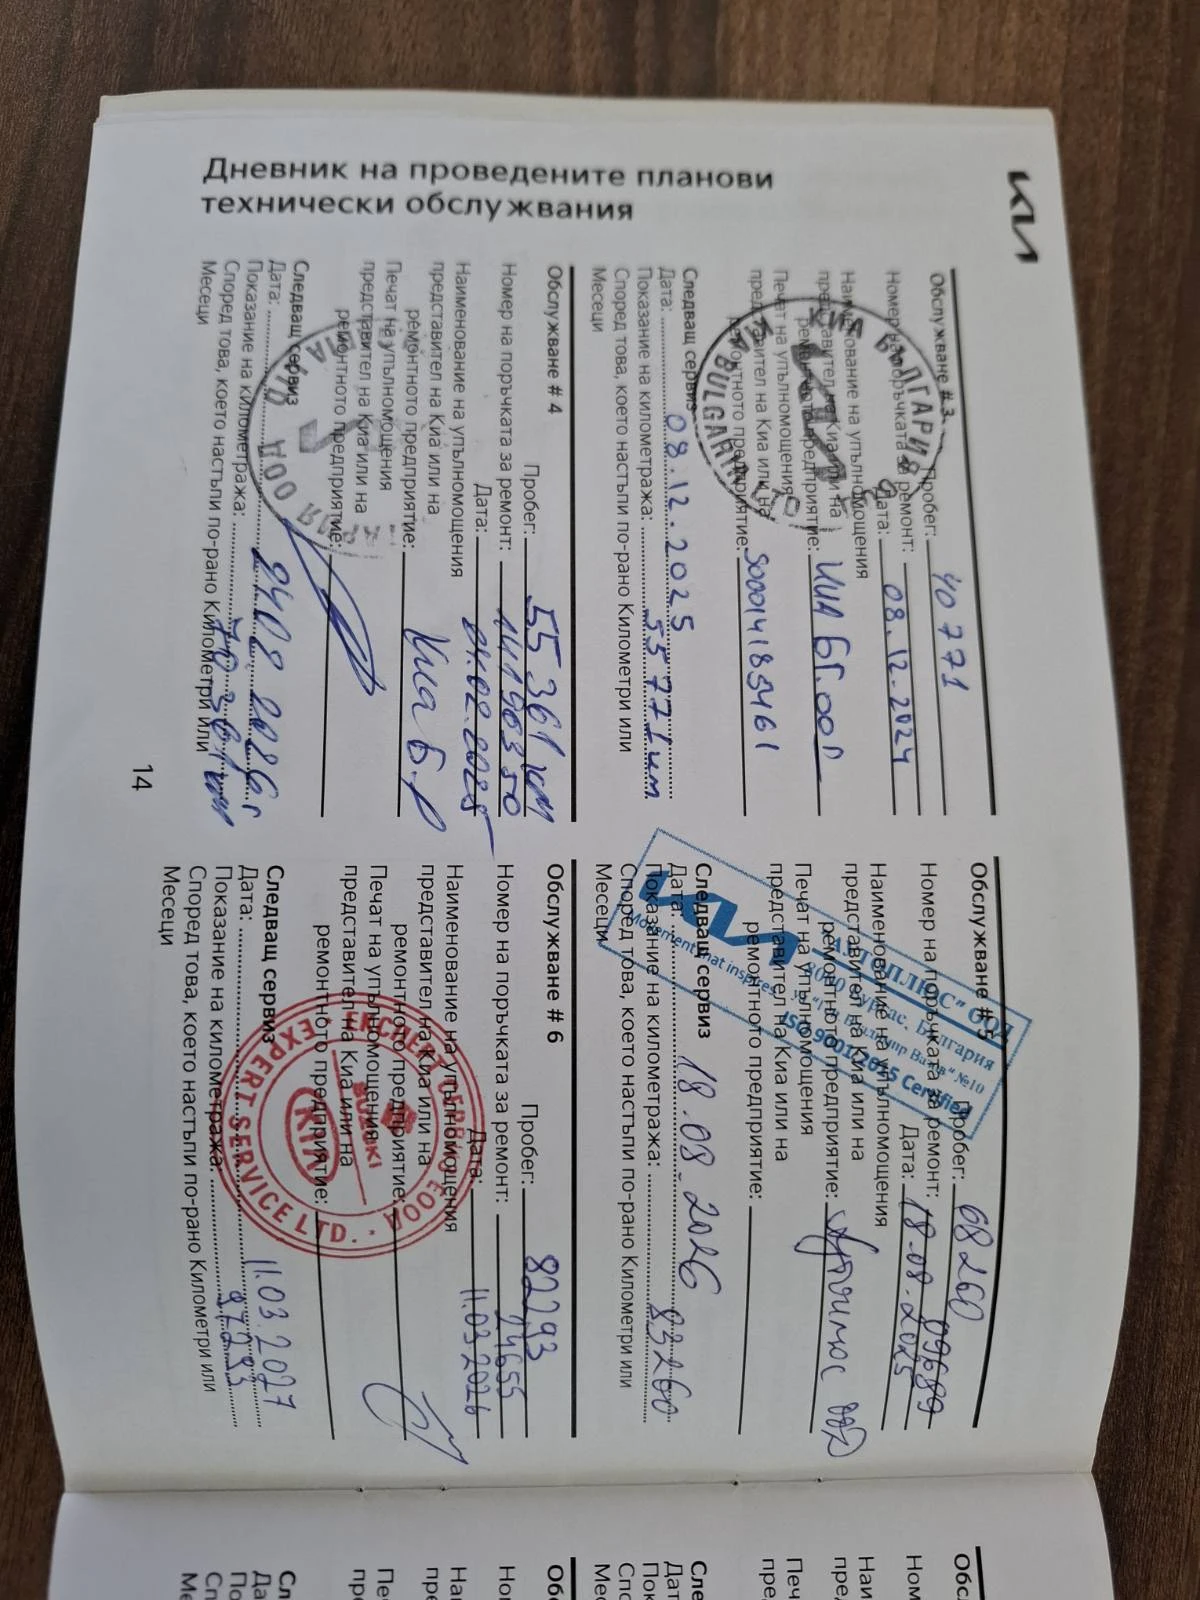 KIA
Дневник на проведените планови
технически обслужвания
Обслужване # 3
Пробег: 40 771
Номер на поръчката за ремонт:
Дата: 08.12.2024
Наименование на упълномощения
представител на Киа или на
ремонтното предприятие: КИА БГ.ООД
Печат на упълномощения
представител на Киа или на
ремонтното предприятие: S0001418S461
КИА БЪЛГАРИЯ
KIA BULGARIA LTD
Следващ сервиз
Дата: 08.12.2025
Показание на километража: 55 771 км
Според това, което настъпи по-рано Километри или
Месеци
Обслужване # 4
Пробег: 55 361 км
Номер на поръчката за ремонт: 14196350
Дата: 04.02.2025
Наименование на упълномощения
представител на Киа или на
ремонтното предприятие: Киа
Печат на упълномощения
представител на Киа или на
ремонтното предприятие:
Следващ сервиз
Дата: 04 02 2026г
Показание на километража: 70 361 км
Според това, което настъпи по-рано Километри или
Месеци
14
Обслужване # 5
Пробег: 68260
Номер на поръчката за ремонт: 09689
Дата: 18.08.2025
Наименование на упълномощения
представител на Киа или на
ремонтното предприятие: ООД
Печат на упълномощения
представител на Киа или на
ремонтното предприятие:
KIA
Movement that inspires
"АВТОПЛЮС" ООД
8000 Бургас, България
ул. "Ген. Владимир Вазов" №10
ISO 9001:2015 Certified
Следващ сервиз
Дата: 18.08.2026
Показание на километража: 83260
Според това, което настъпи по-рано Километри или
Месеци
Обслужване # 6
Пробег: 82293
Номер на поръчката за ремонт: 24655
Дата: 11.03.2026
Наименование на упълномощения
представител на Киа или на
ремонтното предприятие:
Печат на упълномощения
представител на Киа или на
ремонтното предприятие:
ЕКСПЕРТ СЕРВИЗ ЕООД
EXPERT SERVICE LTD.
KIA
Следващ сервиз
Дата: 11.03.2027
Показание на километража: 97293
Според това, което настъпи по-рано Километри или
Месеци